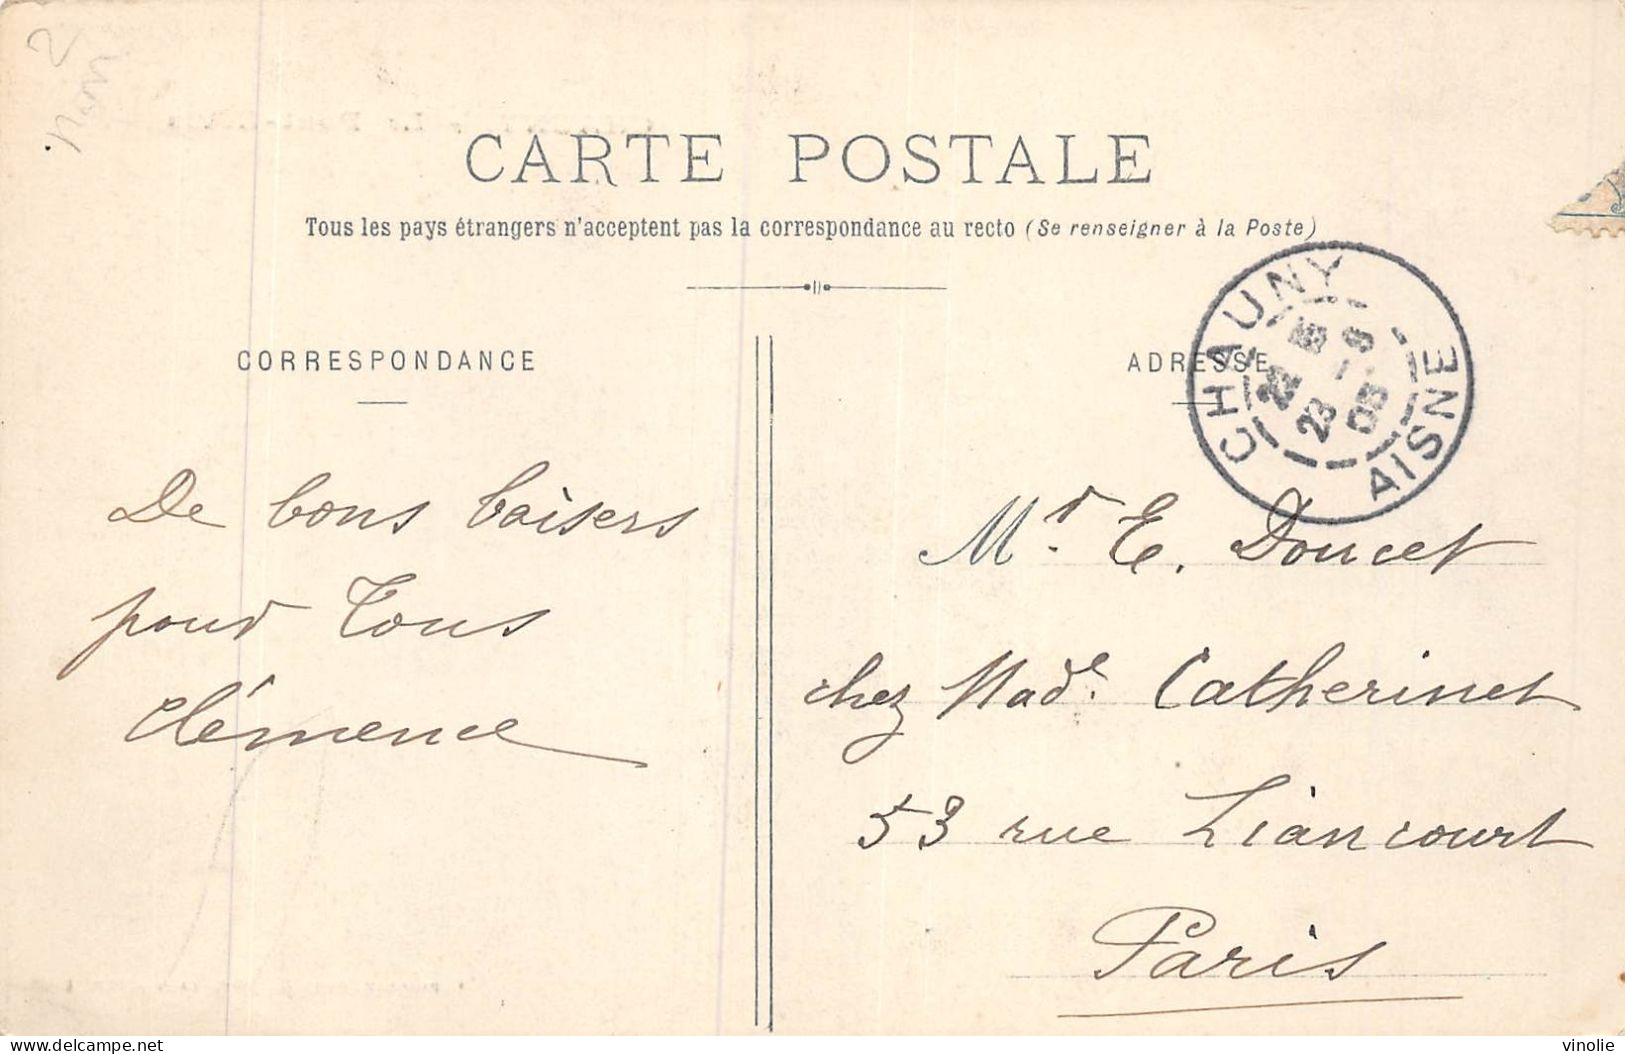 2
CARTE POSTALE
Tous les pays étrangers n'acceptent pas la correspondance au recto (Se renseigner à la Poste)
CORRESPONDANCE
De bons baisers
pour Tous
Clémence
ADRESSE
CHAUNY
AISNE
23 - 8
05
Mr. E. Doucet
chez Made. Catherinet
53 rue Liancourt
Paris
delcampe.net
vinolie